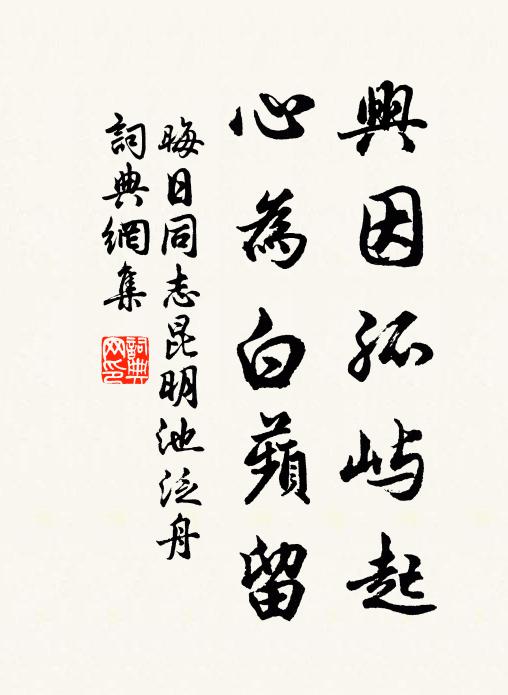 興因孤屿起
心為白蘋留
晦日同志昆明池泛舟
詞典網集
詞典網印